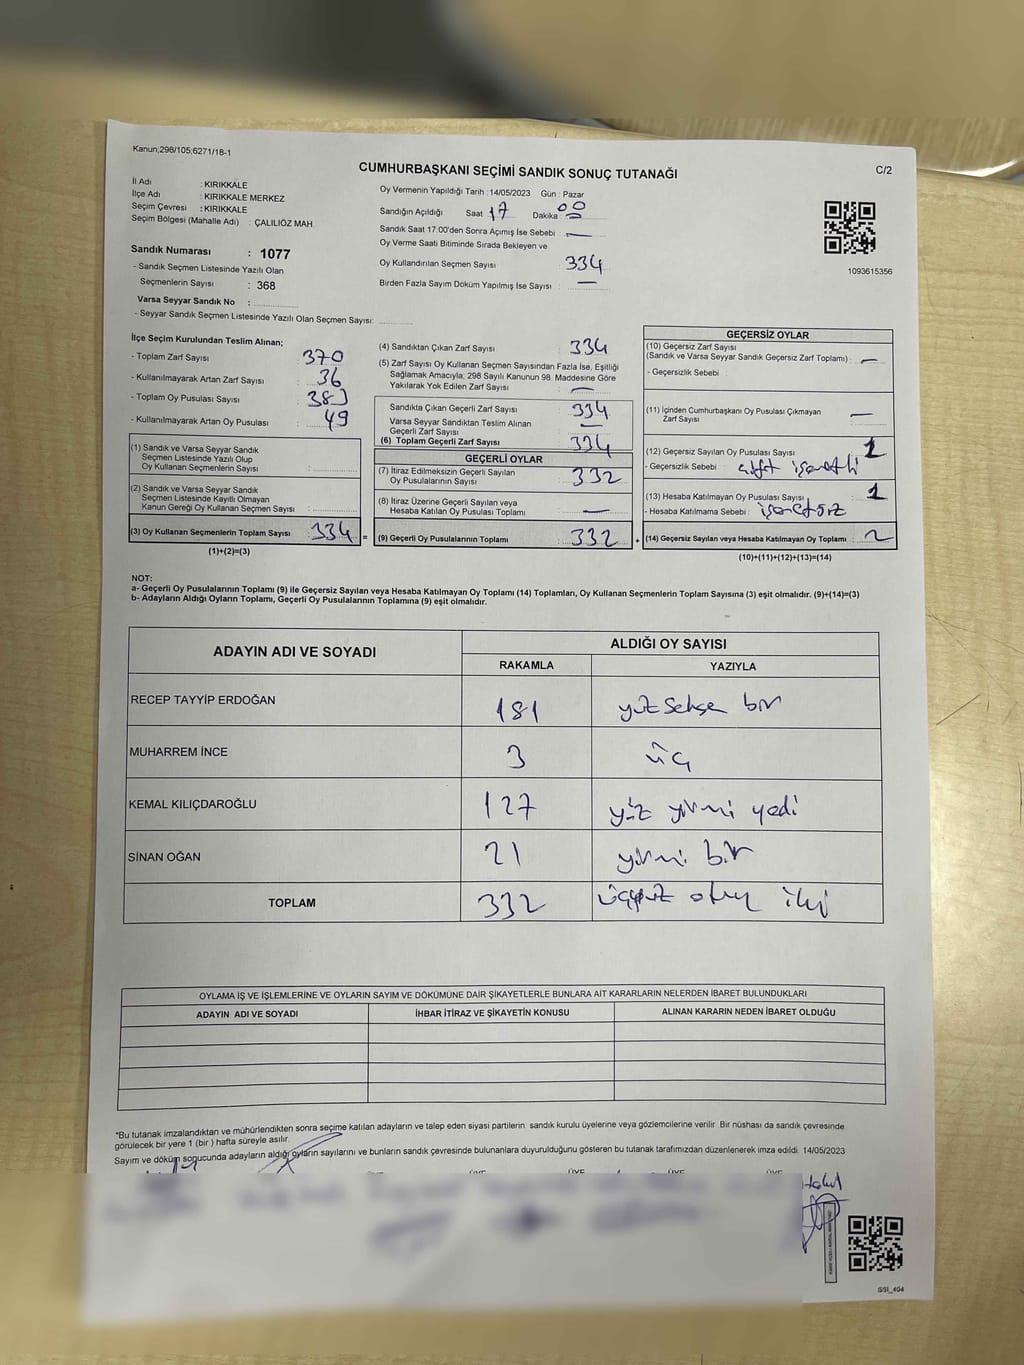 Kanun;298/105;6271/18-1
CUMHURBAŞKANI SEÇİMİ SANDIK SONUÇ TUTANAĞI
C/2
İl Adı : KIRIKKALE
İlçe Adı : KIRIKKALE MERKEZ
Seçim Çevresi : KIRIKKALE
Seçim Bölgesi (Mahalle Adı) : ÇALILIÖZ MAH.
Oy Vermenin Yapıldığı Tarih : 14/05/2023 Gün : Pazar
Sandığın Açıldığı Saat 17 Dakika 00
Sandık Saat 17:00'den Sonra Açımış İse Sebebi : —
Oy Verme Saati Bitiminde Sırada Bekleyen ve
Oy Kullandırılan Seçmen Sayısı 334
Birden Fazla Sayım Döküm Yapılmış İse Sayısı : —
1093615356
Sandık Numarası : 1077
- Sandık Seçmen Listesinde Yazılı Olan
Seçmenlerin Sayısı : 368
Varsa Seyyar Sandık No :
- Seyyar Sandık Seçmen Listesinde Yazılı Olan Seçmen Sayısı:
İlçe Seçim Kurulundan Teslim Alınan;
- Toplam Zarf Sayısı : 370
- Kullanılmayarak Artan Zarf Sayısı : 36
- Toplam Oy Pusulası Sayısı : 383
- Kullanılmayarak Artan Oy Pusulası : 49
(1) Sandık ve Varsa Seyyar Sandık
Seçmen Listesinde Yazılı Olup
Oy Kullanan Seçmenlerin Sayısı :
(2) Sandık ve Varsa Seyyar Sandık
Seçmen Listesinde Kayıtlı Olmayan
Kanun Gereği Oy Kullanan Seçmen Sayısı :
(3) Oy Kullanan Seçmenlerin Toplam Sayısı : 334 =
(1)+(2)=(3)
(4) Sandıktan Çıkan Zarf Sayısı : 334
(5) Zarf Sayısı Oy Kullanan Seçmen Sayısından Fazla İse, Eşitliği
Sağlamak Amacıyla; 298 Sayılı Kanunun 98. Maddesine Göre
Yakılarak Yok Edilen Zarf Sayısı : —
Sandıkta Çıkan Geçerli Zarf Sayısı : 334
Varsa Seyyar Sandıktan Teslim Alınan
Geçerli Zarf Sayısı : —
(6) Toplam Geçerli Zarf Sayısı : 334
GEÇERLİ OYLAR
(7) İtiraz Edilmeksizin Geçerli Sayılan
Oy Pusulalarının Sayısı : 332
(8) İtiraz Üzerine Geçerli Sayılan veya
Hesaba Katılan Oy Pusulası Toplamı : —
(9) Geçerli Oy Pusulalarının Toplamı : 332 +
GEÇERSİZ OYLAR
(10) Geçersiz Zarf Sayısı
(Sandık ve Varsa Seyyar Sandık Geçersiz Zarf Toplamı) : —
- Geçersizlik Sebebi :
(11) İçinden Cumhurbaşkanı Oy Pusulası Çıkmayan
Zarf Sayısı : —
(12) Geçersiz Sayılan Oy Pusulası Sayısı : 1
- Geçersizlik Sebebi : çift işaretli
(13) Hesaba Katılmayan Oy Pusulası Sayısı : 1
- Hesaba Katılmama Sebebi : işaretsiz
(14) Geçersiz Sayılan veya Hesaba Katılmayan Oy Toplamı : 2
(10)+(11)+(12)+(13)=(14)
NOT:
a- Geçerli Oy Pusulalarının Toplamı (9) ile Geçersiz Sayılan veya Hesaba Katılmayan Oy Toplamı (14) Toplamları, Oy Kullanan Seçmenlerin Toplam Sayısına (3) eşit olmalıdır. (9)+(14)=(3)
b- Adayların Aldığı Oyların Toplamı, Geçerli Oy Pusulalarının Toplamına (9) eşit olmalıdır.
ADAYIN ADI VE SOYADI
ALDIĞI OY SAYISI
RAKAMLA YAZIYLA
RECEP TAYYİP ERDOĞAN 181 yüz seksen bir
MUHARREM İNCE 3 üç
KEMAL KILIÇDAROĞLU 127 yüz yirmi yedi
SİNAN OĞAN 21 yirmi bir
TOPLAM 332 üçyüz otuz iki
OYLAMA İŞ VE İŞLEMLERİNE VE OYLARIN SAYIM VE DÖKÜMÜNE DAİR ŞİKAYETLERLE BUNLARA AİT KARARLARIN NELERDEN İBARET BULUNDUKLARI
ADAYIN ADI VE SOYADI İHBAR İTİRAZ VE ŞİKAYETİN KONUSU ALINAN KARARIN NEDEN İBARET OLDUĞU
*Bu tutanak imzalandıktan ve mühürlendikten sonra seçime katılan adayların ve talep eden siyasi partilerin sandık kurulu üyelerine veya gözlemcilerine verilir. Bir nüshası da sandık çevresinde
görülecek bir yere 1 (bir) hafta süreyle asılır.
Sayım ve döküm sonucunda adayların aldığı oyların sayılarını ve bunların sandık çevresinde bulunanlara duyurulduğunu gösteren bu tutanak tarafımızdan düzenlenerek imza edildi. 14/05/2023
ÜYE ÜYE ÜYE ÜYE
SSI_404